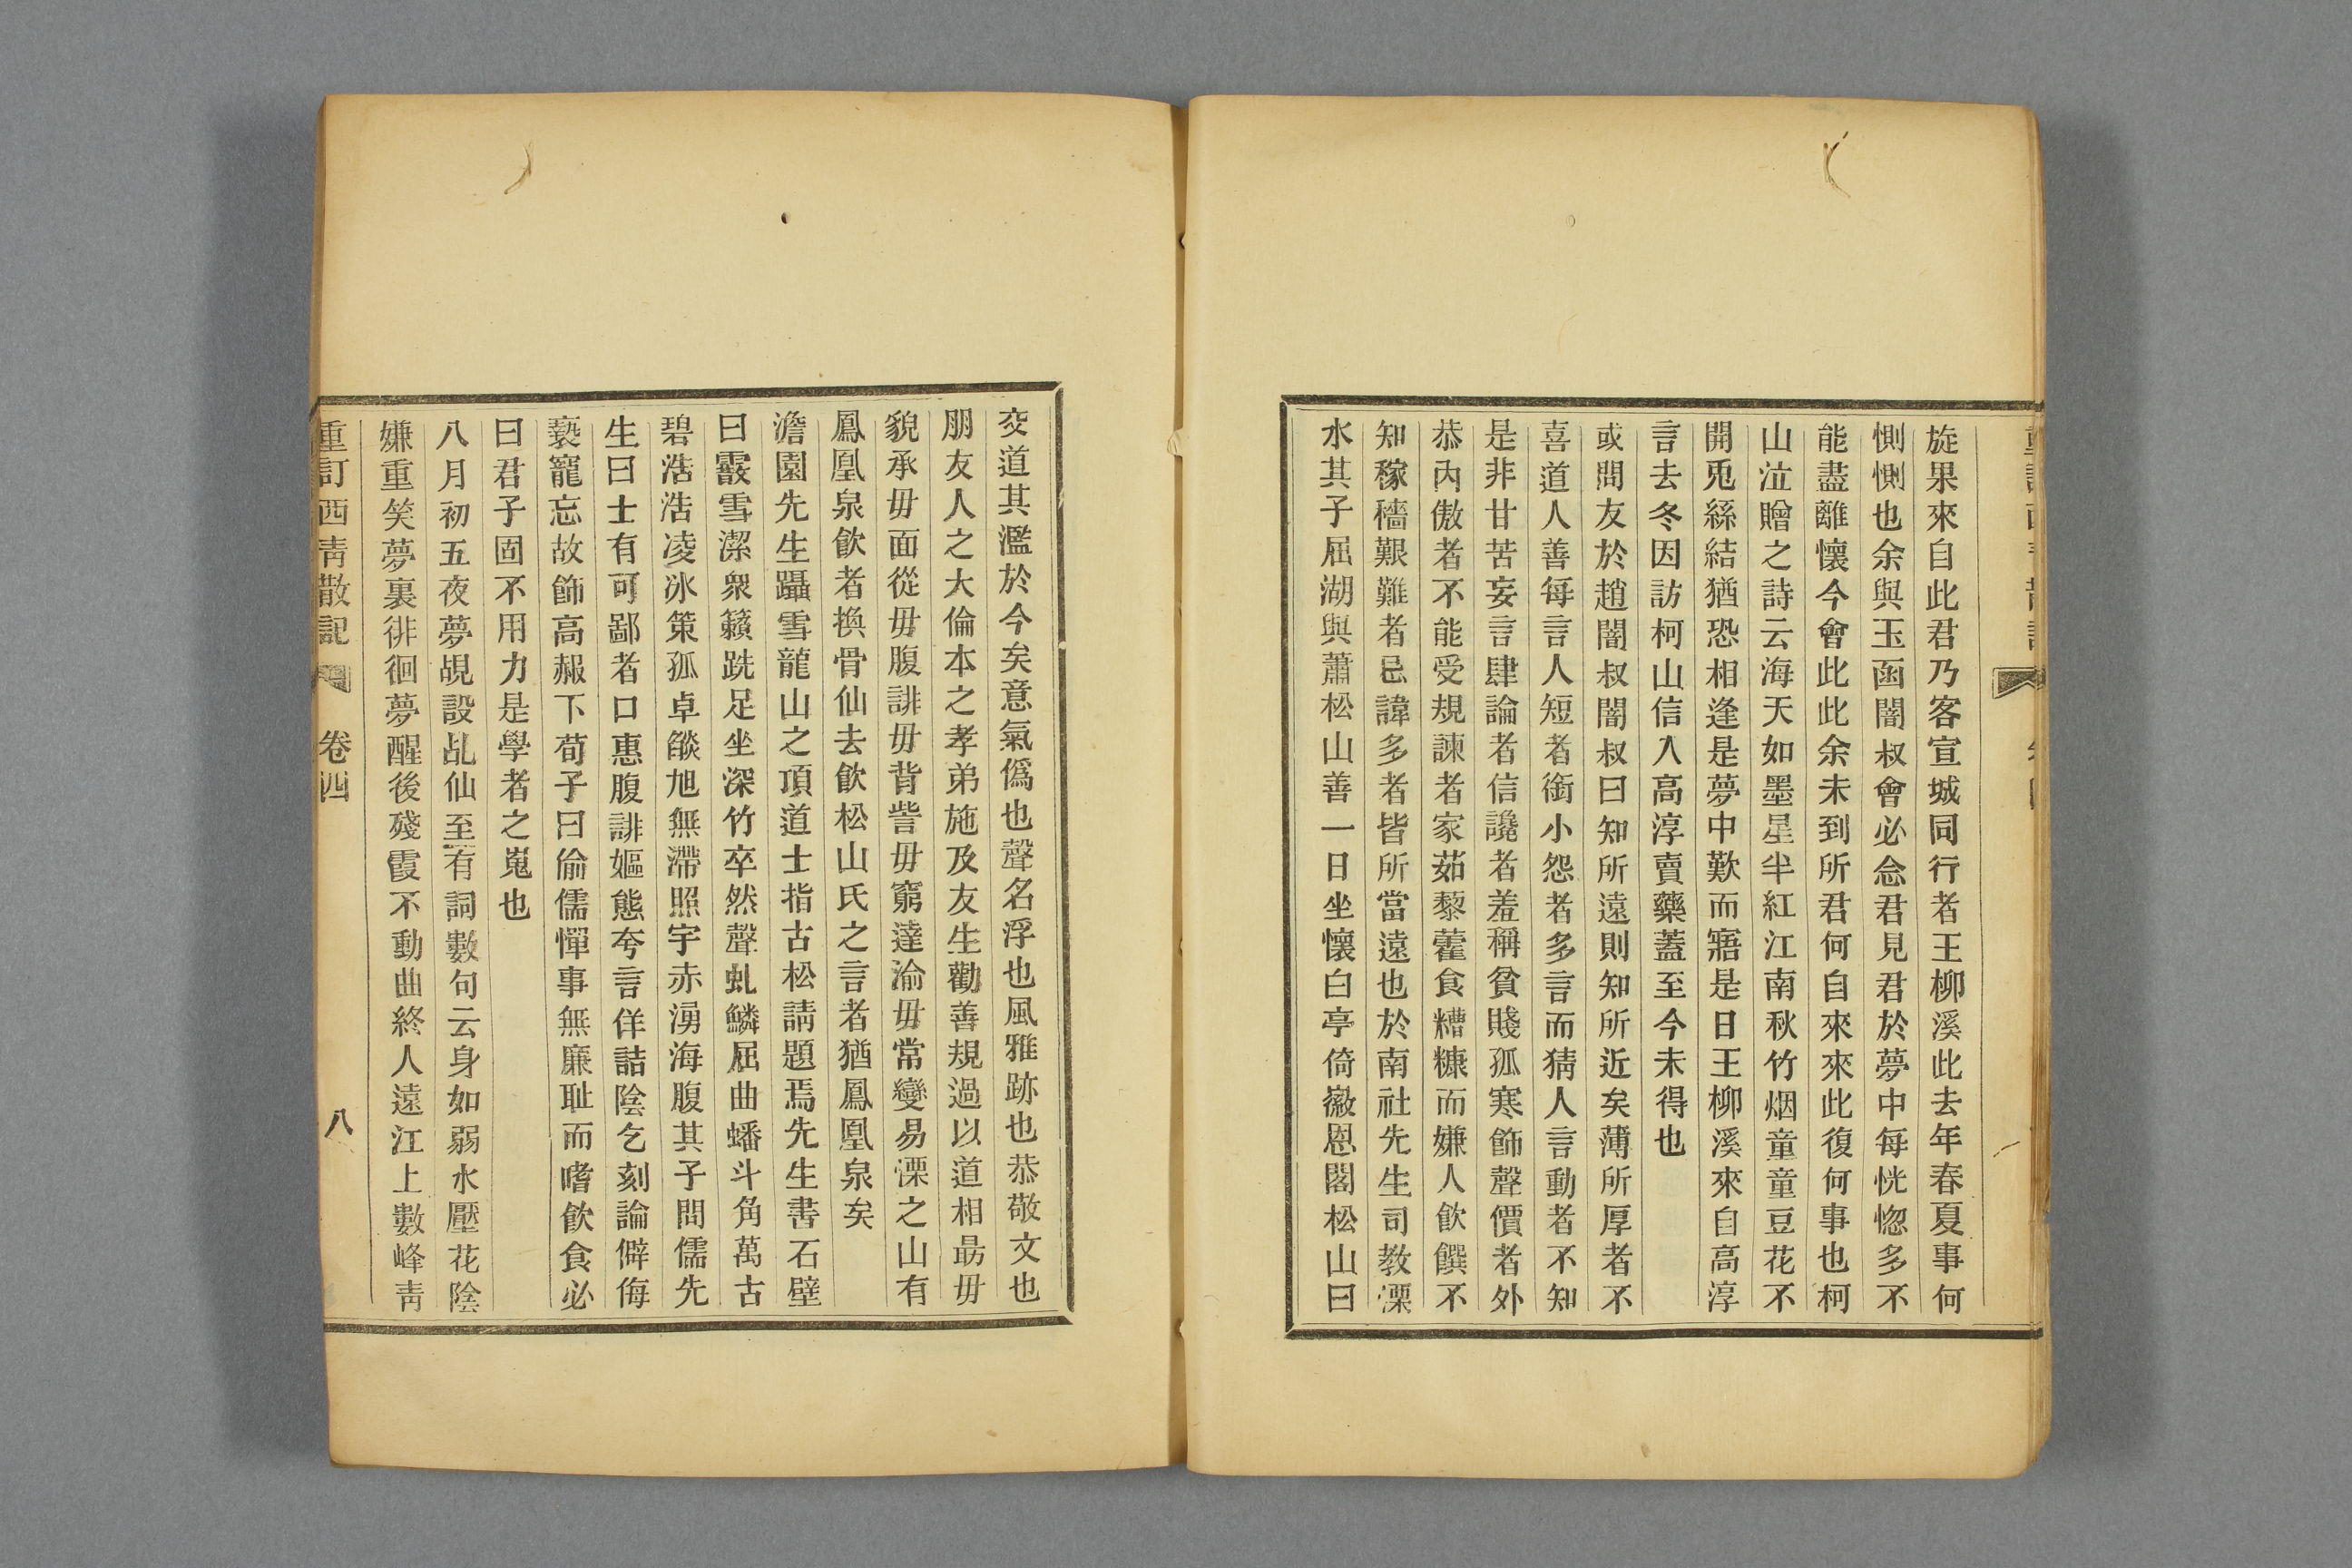 旋果來自此君乃客宣城同行者王柳溪此去年春夏事何
惻惻也余與玉函闇叔會必念君見君於夢中每恍惚多不
能盡離懷今會此此余未到所君何自來來此復何事也柯
山泣贈之詩云海天如墨星半紅江南秋竹烟童童豆花不
開兎絲結猶恐相逢是夢中歎而寤是日王柳溪來自高淳
言去冬因訪柯山信入高淳賣藥蓋至今未得也
或問友於趙闇叔闇叔曰知所遠則知所近矣薄所厚者不
喜道人善每言人短者銜小怨者多言而猜人言動者不知
是非甘苦妄言肆論者信讒者羞稱貧賤孤寒飾聲價者外
恭內傲者不能受規諫者家茹藜藿食糟糠而嫌人飲饌不
知稼穡艱難者忌諱多者皆所當遠也於南社先生司教溧
水其子屈湖與蕭松山善一日坐懷白亭倚嶶恩閣松山曰
交道其濫於今矣意氣僞也聲名浮也風雅跡也恭敬文也
朋友人之大倫本之孝弟施及友生勸善規過以道相勗毋
貌承毋面從毋腹誹毋背訾毋窮達渝毋常變易溧之山有
鳳凰泉飲者換骨仙去飲松山氏之言者猶鳳凰泉矣
澹園先生躡雪龍山之頂道士指古松請題焉先生書石壁
曰霰雪潔衆籟跣足坐深竹卒然聲虬鱗屈曲蟠斗角萬古
碧浩浩凌冰策孤卓燄旭無滯照宇赤湧海腹其子問儒先
生曰士有可鄙者口惠腹誹嫗態夸言佯詰陰乞刻論僻侮
褻寵忘故飾高赧下荀子曰偷儒憚事無廉耻而嗜飲食必
曰君子固不用力是學者之嵬也
八月初五夜夢覘設乩仙至有詞數句云身如弱水壓花陰
嫌重笑夢裏徘徊夢醒後殘霞不動曲終人遠江上數峰靑
重訂西靑散記 卷四 八